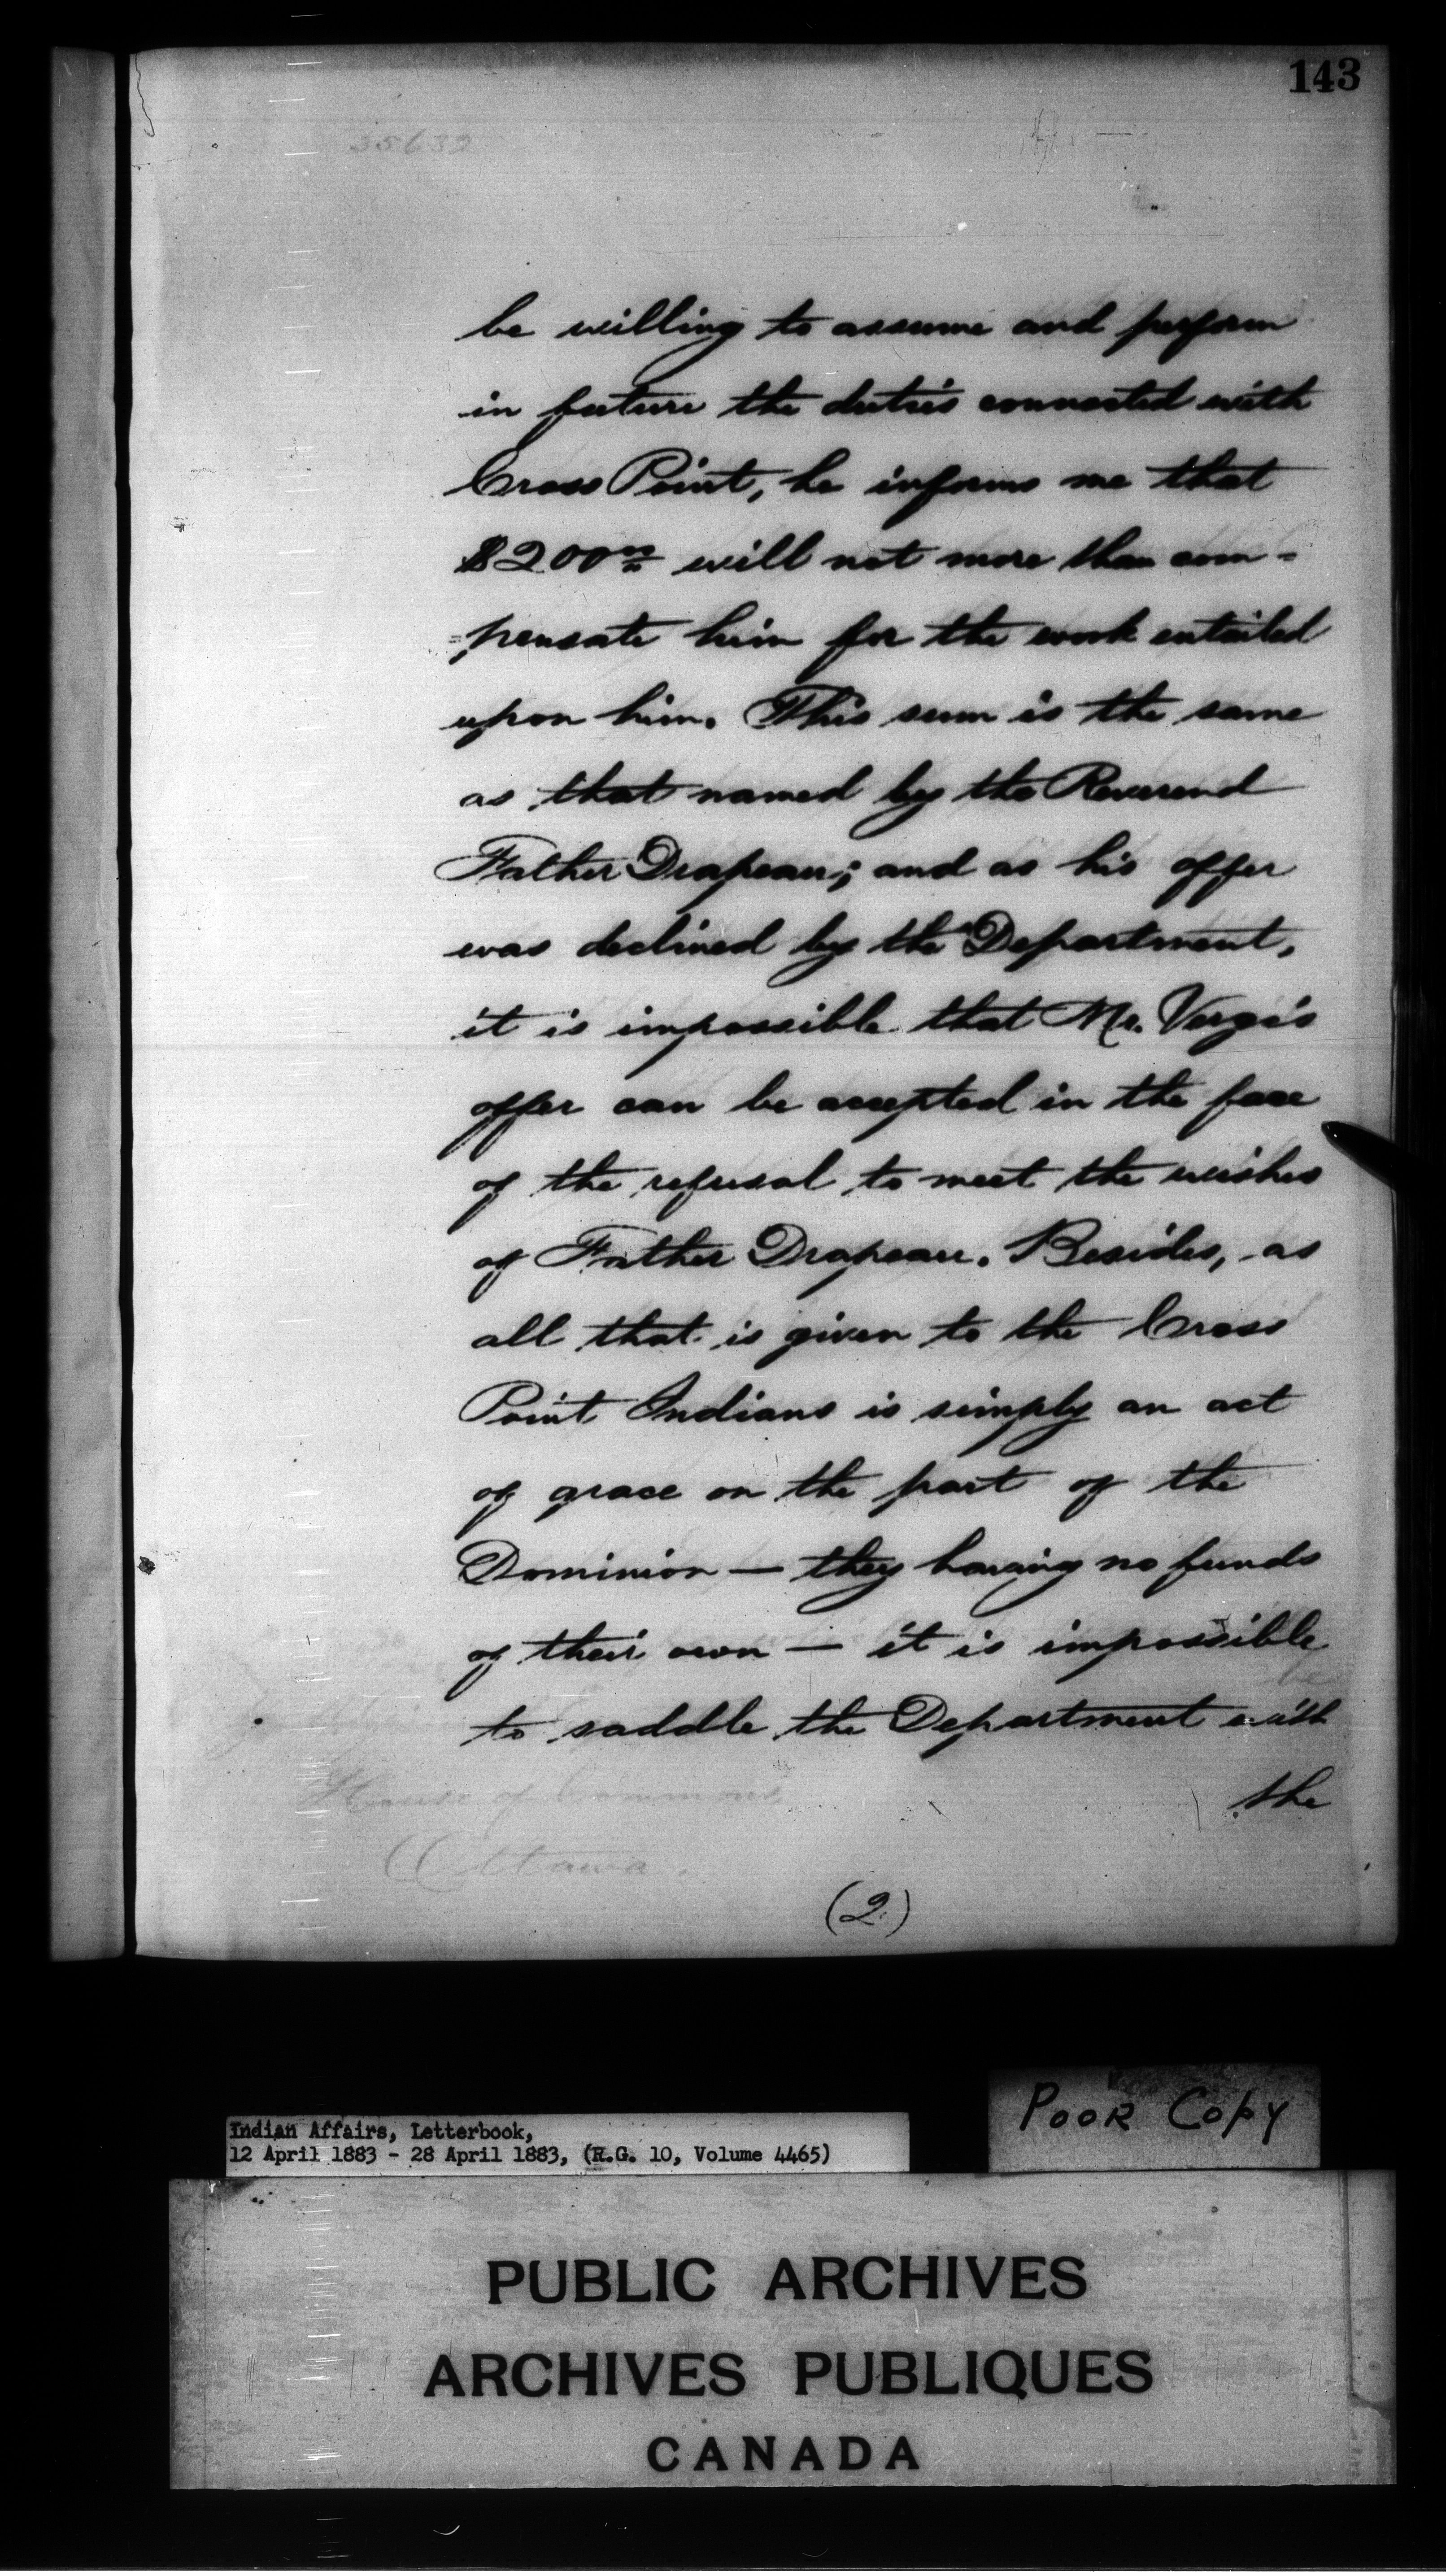 143
35632
be willing to assume and perform
in future the duties connected with
Cross Point, he informs me that
$200.00 will not more than com=
=pensate him for the work entailed
upon him. This sum is the same
as that named by the Reverend
Father Drapeau; and as his offer
was declined by the Department,
it is impossible that Mr. Verge's
offer can be accepted in the face
of the refusal to meet the wishes
of Father Drapeau. Besides, as
all that is given to the Cross
Point Indians is simply an act
of grace on the part of the
Dominion — they having no funds
of their own — it is impossible
to saddle the Department with
the
House of Commons
Ottawa.
(2)
Poor Copy
Indian Affairs, Letterbook,
12 April 1883 - 28 April 1883, (R.G. 10, Volume 4465)
PUBLIC ARCHIVES
ARCHIVES PUBLIQUES
CANADA